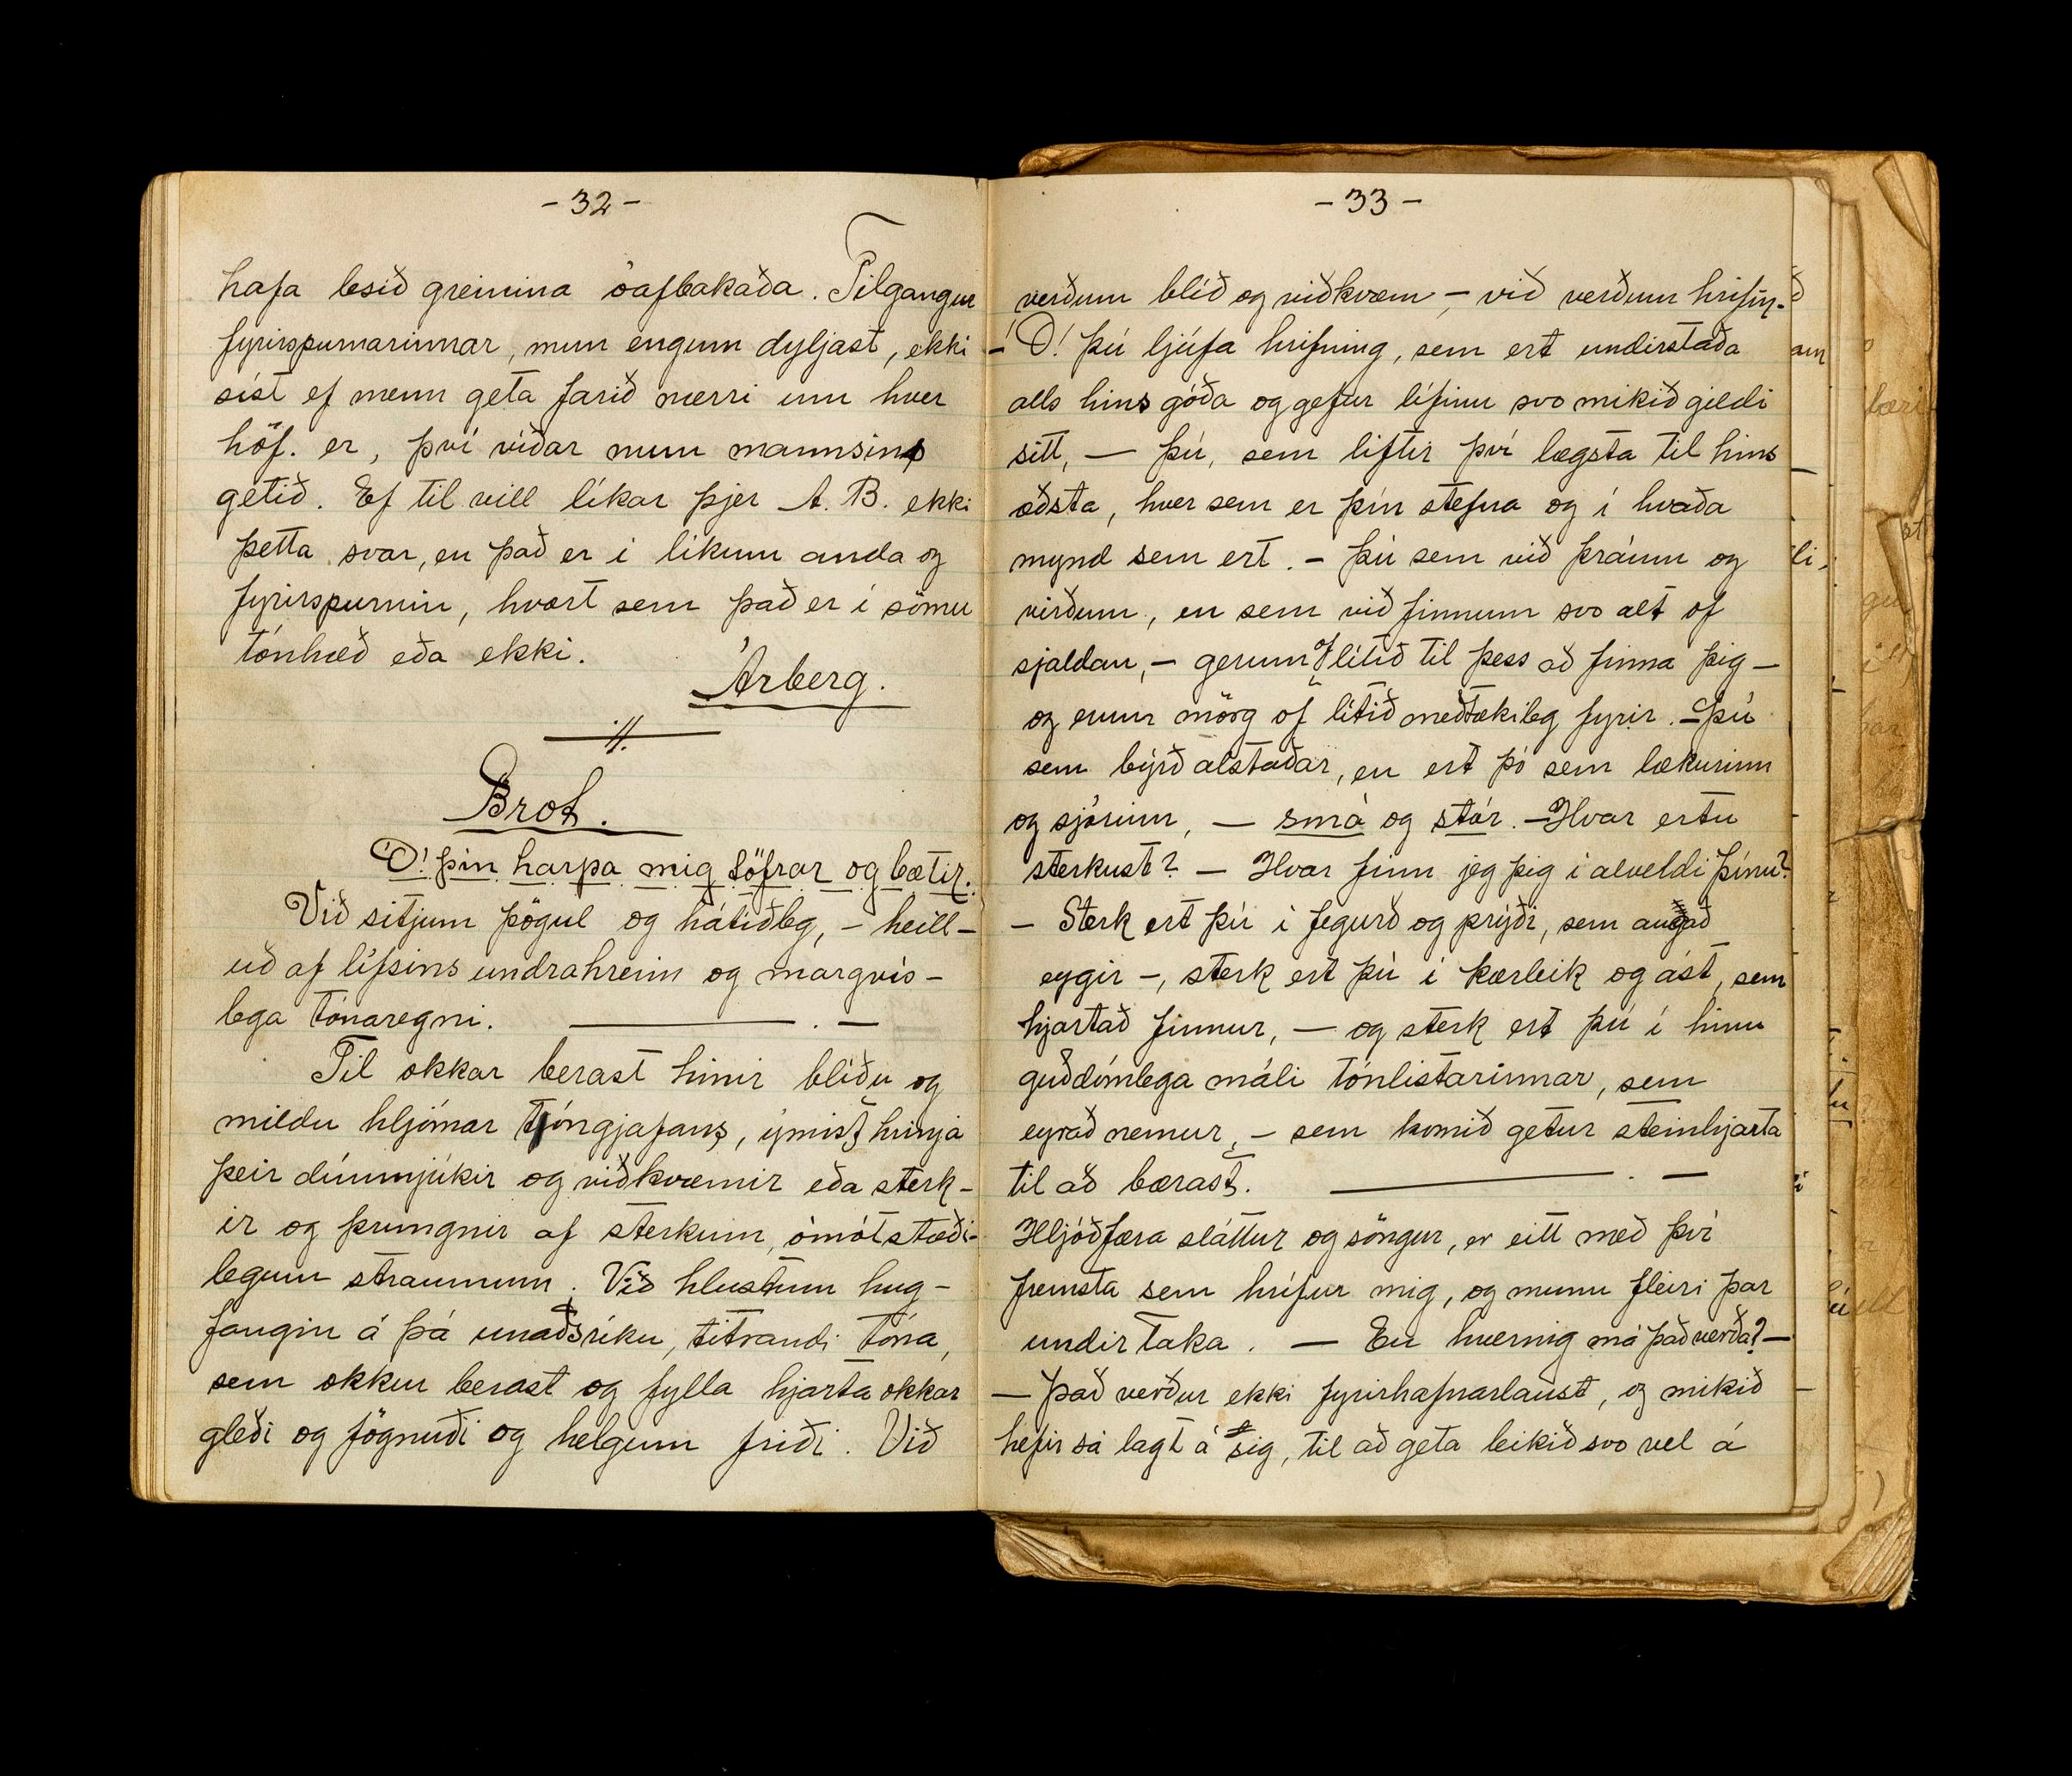 - 32 -
hafa lesið greinina óafbakaða. Tilgangur
fyrirspurnarinnar, mun engum dyljast, ekki
síst ef menn geta farið nærri um hver
höf. er, því víðar mun mannsins
getið. Ef til vill líkar þjer A. B. ekki
þetta svar, en það er í líkum anda og
fyrirspurnin, hvort sem það er í sömu
tónhæð eða ekki.
Árberg.
Brot.
Ó! þín harpa mig töfrar og bætir.
Við sitjum þögul og hátíðleg, - heill-
uð af lífsins undrahreim og margvís-
lega tónaregni. — . —
Til okkar berast hinir blíðu og
mildu hljómar tóngjafans, ýmist hrinja
þeir dúnmjúkir og viðkvæmir eða sterk-
ir og þrungnir af sterkum, ómótstæði-
legum straumum. Við hlustum hug-
fangin á þá unaðsríku, titrandi tóna,
sem okkur berast og fylla hjarta okkar
gleði og fögnuði og helgum friði. Við
- 33 -
verðum blíð og viðkvæm, - við verðum hrifin.
- Ó! þú ljúfa hrifning, sem ert undirstaða
alls hins góða og gefur lífinu svo mikið gildi
sitt, — þú, sem liftir því lægsta til hins
æðsta, hver sem er þín stefna og í hvaða
mynd sem ert. - þú sem við þráum og
virðum, en sem við finnum svo alt of
sjaldan, - gerum of lítið til þess að finna þig —
og erum mörg of lítið meðtækileg fyrir. - Þú
sem býrð alstaðar, en ert þó sem lækurinn
og sjórinn, — smá og stór. - Hvar ertu
sterkust? — Hvar finn jeg þig í alveldi þínu?
- Sterk ert þú í fegurð og prýði, sem augað
eygir -, sterk ert þú í kærleik og ást, sem
hjartað finnur, — og sterk ert þú í hinu
guðdómlega máli tónlistarinnar, sem
eyrað nemur, - sem komið getur steinhjarta
til að bærast. — . —
Hljóðfæra sláttur og söngur, er eitt með því
fremsta sem hrífur mig, og munu fleiri þar
undir taka. — En hvernig má það verða? —
— Það verður ekki fyrirhafnarlaust, og mikið
hefir sá lagt á sig, til að geta leikið svo vel á